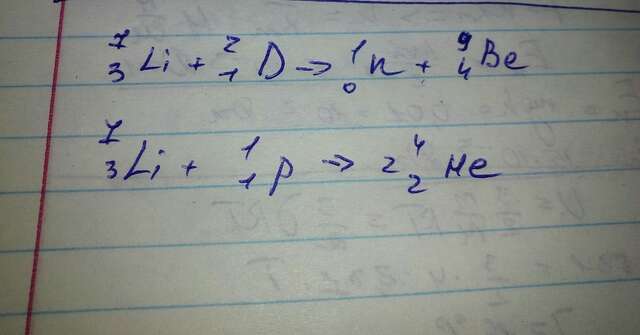 ⁷₃Li + ²₁D → ¹₀n + ⁹₄Be
⁷₃Li + ¹₁p → 2 ⁴₂He